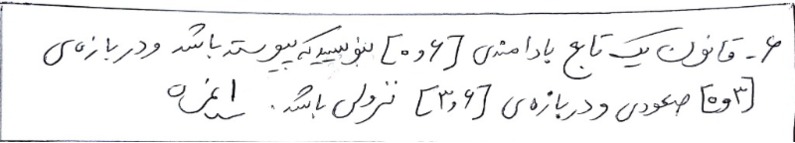 ۶- قانون یک تابع با دامنه‌ی [۶و۰] بنویسید که پیوسته باشد و در بازه‌ی
[۳و۰] صعودی و در بازه‌ی [۶و۳] نزولی باشد. ۱نمره